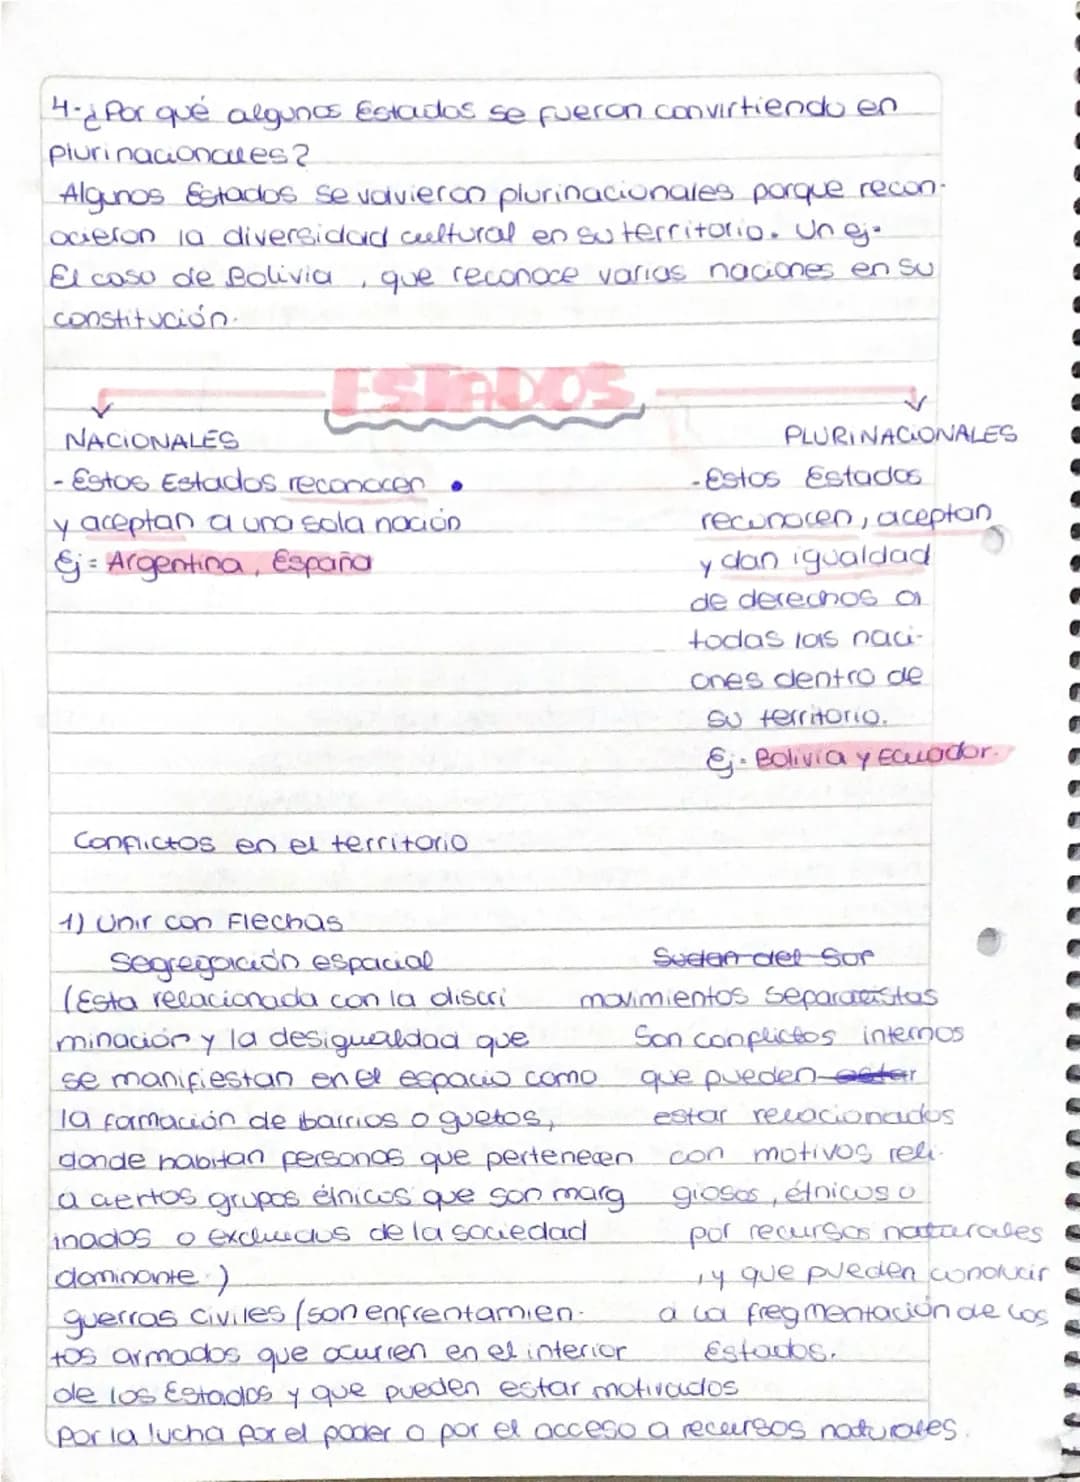 4-¿Por qué algunos Estados se fueron convirtiendo en
plurinacionales?
Algunos Estados se volvieron plurinacionales porque recon-
ocieron la diversidad cultural en su territorio. Un ej.
El caso de Bolivia, que reconoce varias naciones en su
constitución.
ESTADOS
NACIONALES
- Estos Estados reconocen
y aceptan a una sola nación
Ej = Argentina, España
PLURINACIONALES
- Estos Estados
reconocen, aceptan
y dan igualdad
de derechos a
todas las naci-
ones dentro de
su territorio.
Ej. Bolivia y Ecuador.
Conflictos en el territorio
1) Unir con Flechas
Segregación espacial
(Esta relacionada con la discri
minación y la desigualdad que
se manifiestan en el espacio como
la formación de barrios o guetos,
donde habitan personas que pertenecen
a ciertos grupos étnicos que son marg
inados o excluidos de la sociedad
dominante.)
guerras civiles (son enfrentamien-
tos armados que ocurren en el interior
de los Estados y que pueden estar motivados
por la lucha por el poder o por el acceso a recursos naturales.
Sudan del Sur
movimientos separatistas
Son conflictos internos
que pueden estar
estar relacionados
con motivos reli-
giosos, étnicos o
por recursos naturales
, y que pueden conducir
a la fregmentación de los
Estados.